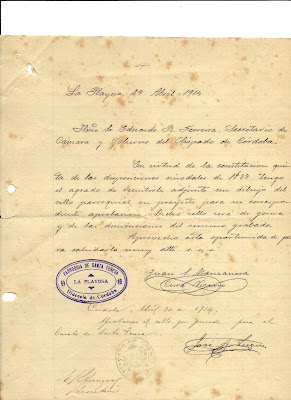 La Playosa 29 Abril 1914
Ilmo Sr Eduardo R. Ferreira, Secretario de
Cámara y Gobierno del Obispado de Córdoba.
En virtud de la constitucion quin
ta de las disposiciones sinodales de 1877 tengo
el agrado de remitirle adjunto un dibujo del
sello parroquial en proyecto para su correspon
diente aprobacion. Dicho sello será de goma
y de las dimensiones del mismo grabado.
Aprovecho esta oportunidad pa
ra saludarlo muy atte s. s.
Juan
Cura Vicario
PARROQUIA DE SANTA TERESA
19 LA PLAYOSA 19
Diócesis de Córdoba
Abril 30 de 1914.
el sello para el
Curato de Santa Teresa
José